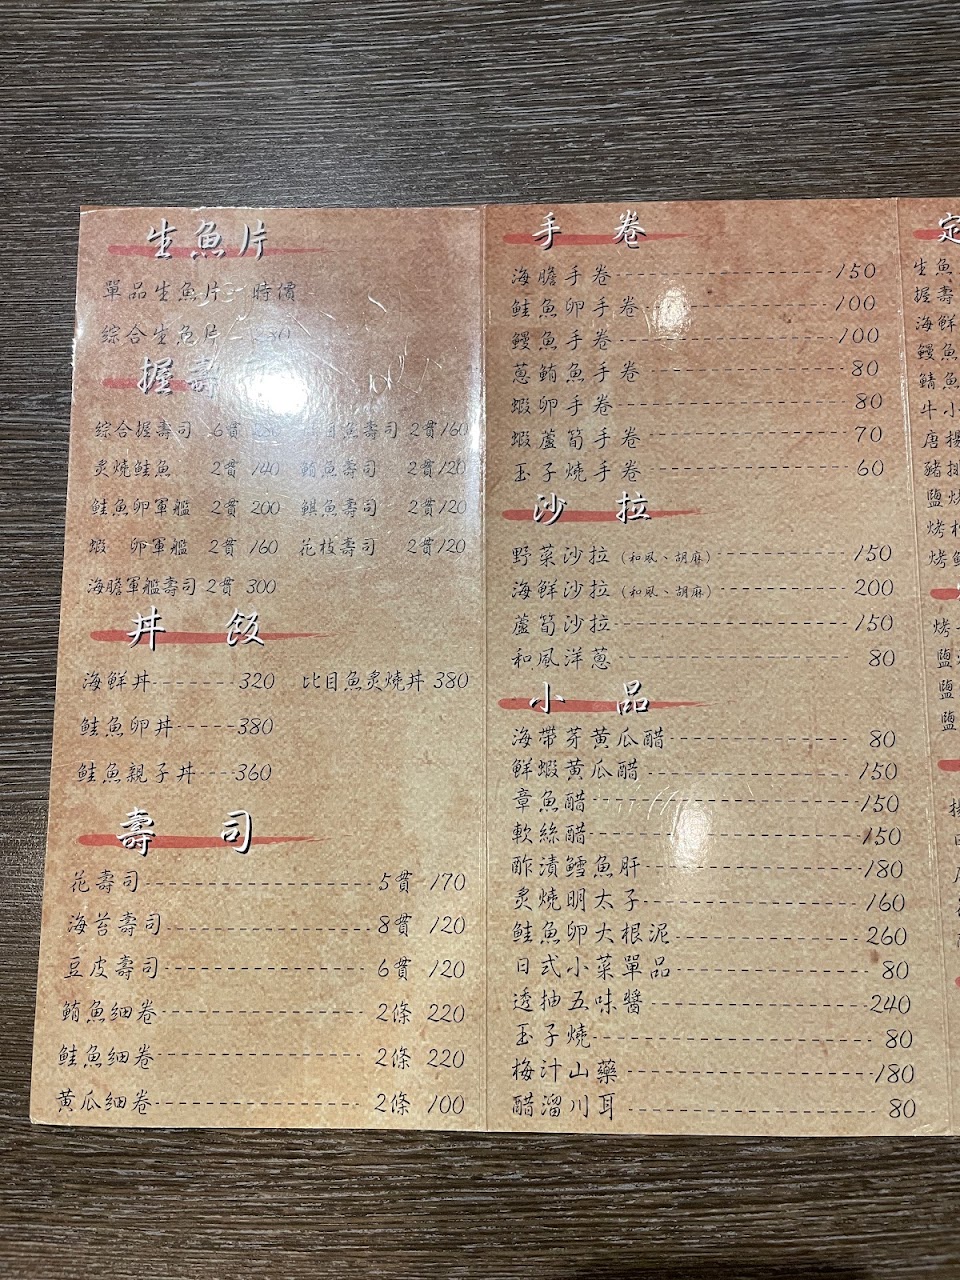 生魚片
單品生魚片 時價
綜合生魚片
握壽
綜合握壽司 6貫
目魚壽司 2貫 160
炙燒鮭魚 2貫 140
鮪魚壽司 2貫 120
鮭魚卵軍艦 2貫 200
鯕魚壽司 2貫 120
蝦 卵軍艦 2貫 160
花枝壽司 2貫 120
海膽軍艦壽司 2貫 300
丼 飯
海鮮丼 320
比目魚炙燒丼 380
鮭魚卵丼 380
鮭魚親子丼 360
壽 司
花壽司 5貫 170
海苔壽司 8貫 120
豆皮壽司 6貫 120
鮪魚細卷 2條 220
鮭魚細卷 2條 220
黃瓜細卷 2條 100
手 卷
海膽手卷 150
鮭魚卵手卷 100
鰻魚手卷 100
蔥鮪魚手卷 80
蝦卵手卷 80
蝦蘆筍手卷 70
玉子燒手卷 60
沙 拉
野菜沙拉(和風、胡麻) 150
海鮮沙拉(和風、胡麻) 200
蘆筍沙拉 150
和風洋蔥 80
小 品
海帶芽黃瓜醋 80
鮮蝦黃瓜醋 150
章魚醋 150
軟絲醋 150
酢漬鱈魚肝 180
炙燒明太子 160
鮭魚卵大根泥 260
日式小菜單品 80
透抽五味醬 240
玉子燒 80
梅汁山藥 180
醋溜川耳 80
定
生魚
握壽
海鮮
鰻魚
鯖魚
牛小
唐揚
豬排
鹽烤
烤
烤鮭
烤
鹽
鹽
鹽